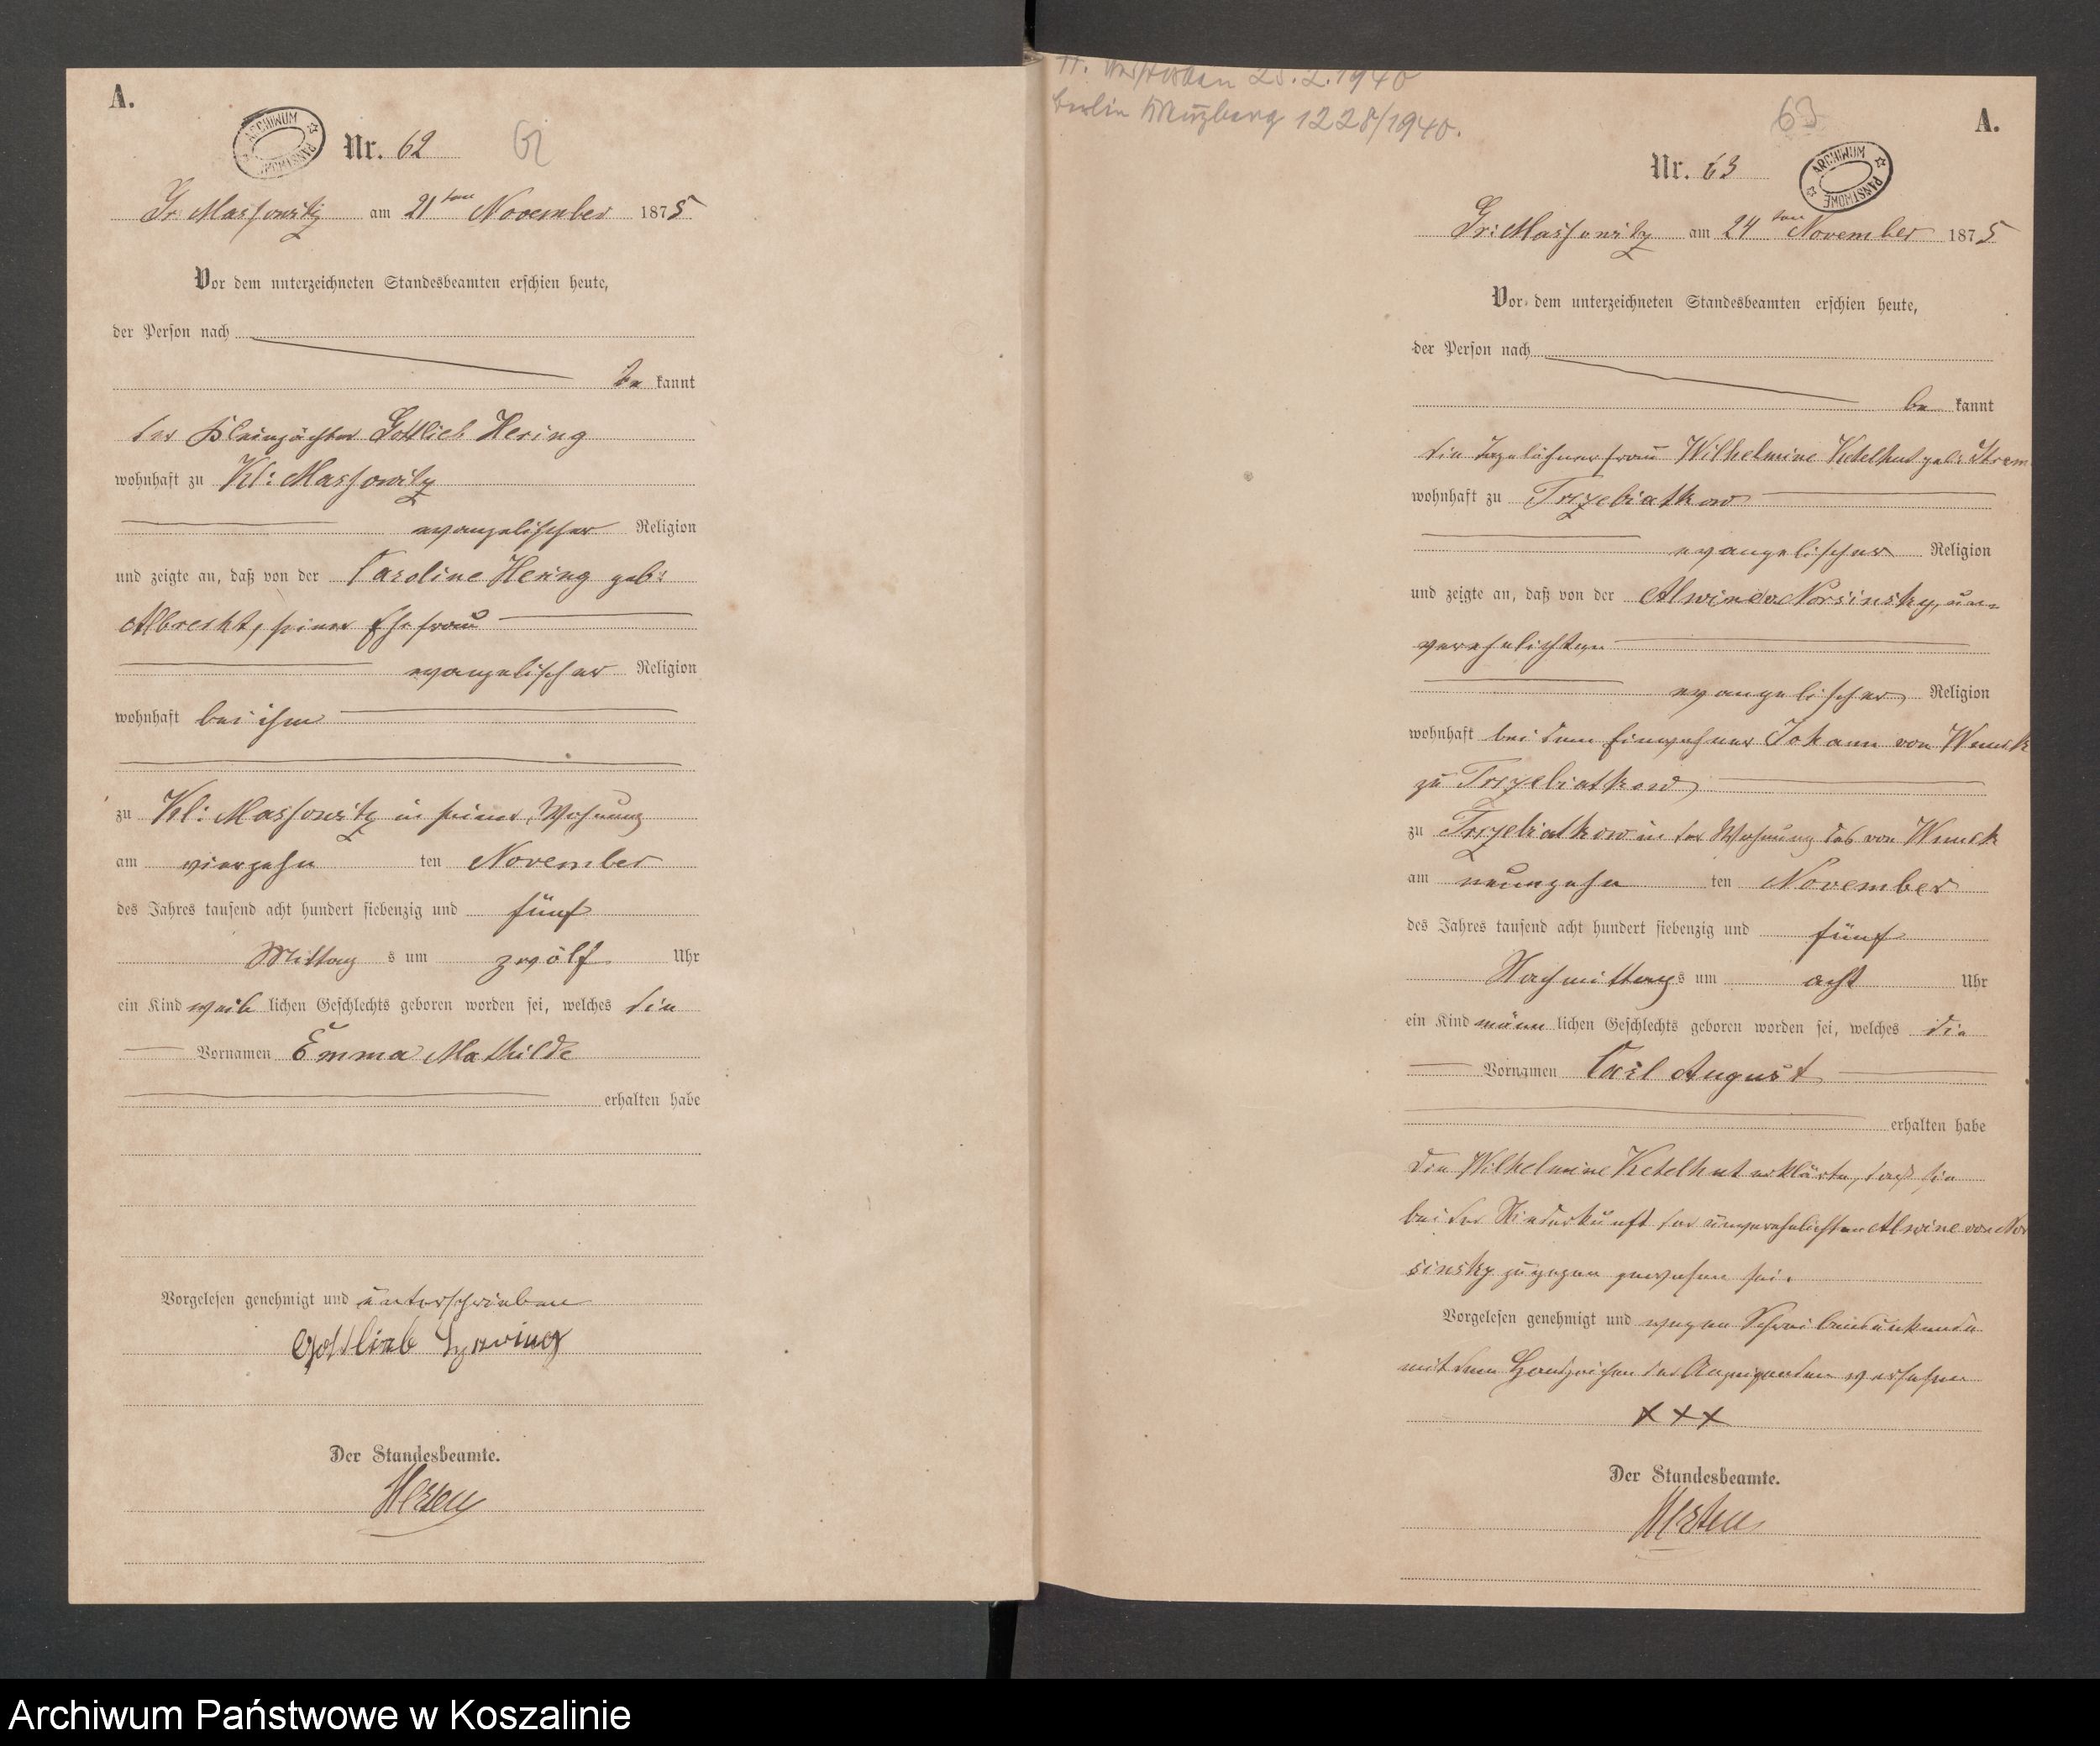 A.
ARCHIWUM PAŃSTWOWE
Nr. 62
62
Gr. Massowitz am 21ten November 1875
Vor dem unterzeichneten Standesbeamten erschien heute,
der Person nach
be kannt
der Kleinpächter Gottlieb Hering
wohnhaft zu Kl: Massowitz
evangelischer Religion
und zeigte an, daß von der Caroline Hering geb:
Albrecht, seiner Ehefrau
evangelischer Religion
wohnhaft bei ihm
zu Kl: Massowitz in seiner Wohnung
am vierzehn ten November
des Jahres tausend acht hundert siebenzig und fünf
Mittag s um zwölf Uhr
ein Kind weib lichen Geschlechts geboren worden sei, welches die
Vornamen Emma Mathilde
erhalten habe
Vorgelesen genehmigt und unterschrieben
Gottlieb Hering
Der Standesbeamte.
verstorben 2.1940
Berlin Kreuzberg 1228/1940.
63
A.
Nr. 63
ARCHIWUM PAŃSTWOWE
Gr: Massowitz am 24ten November 1875
Vor dem unterzeichneten Standesbeamten erschien heute,
der Person nach
be kannt
die Tagelöhnerfrau Wilhelmine Ketelhut geb:
wohnhaft zu Trzebiatkow
evangelischer Religion
und zeigte an, daß von der Alwine v. Norsinsky, un-
verehelichten
evangelischer Religion
wohnhaft bei dem Einwohner Johann von Wnuck
zu Trzebiatkow
zu Trzebiatkow in der Wohnung des von Wnuck
am neunzehn ten November
des Jahres tausend acht hundert siebenzig und fünf
Nachmittags um acht Uhr
ein Kind männ lichen Geschlechts geboren worden sei, welches die
Vornamen Carl August
erhalten habe
Die Wilhelmine Ketelhut erklärte, daß sie
bei der Niederkunft der unverehelichten Alwine von Nor
sinsky zugegen gewesen sei.
Vorgelesen genehmigt und wegen Schreibensunkunde
mit dem Handzeichen der Anzeigenden versehen
XXX
Der Standesbeamte.
Archiwum Państwowe w Koszalinie